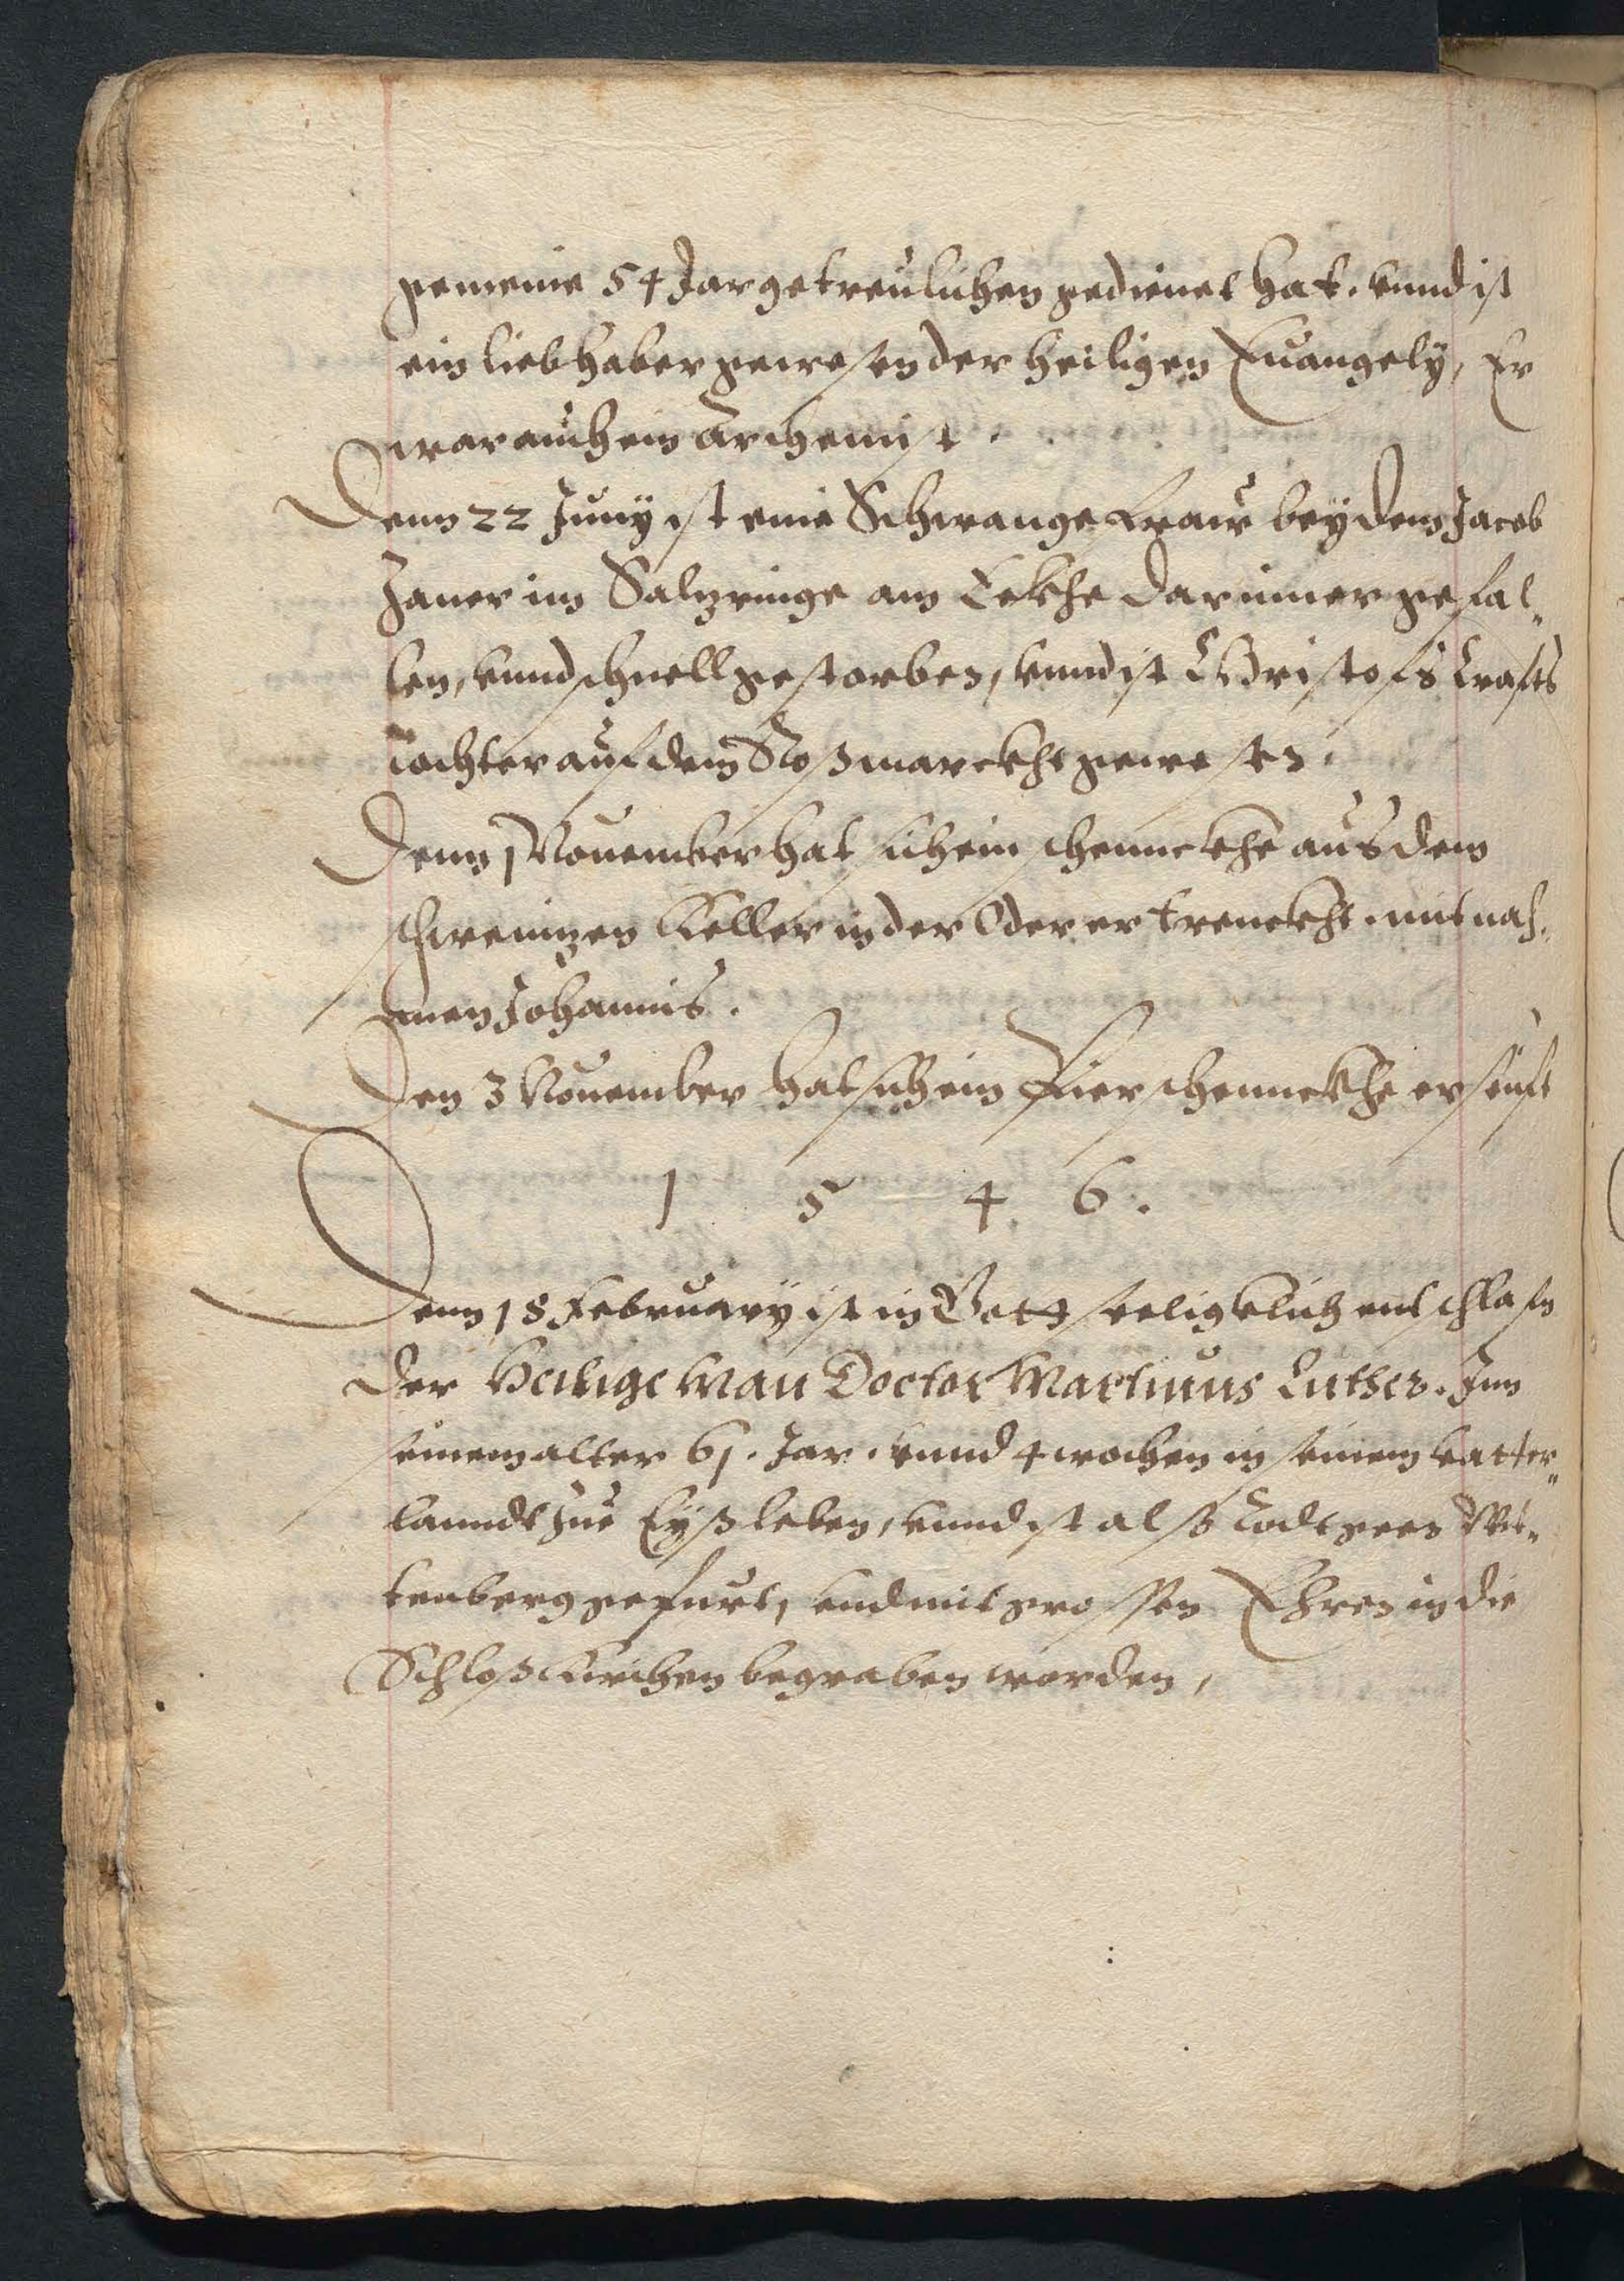 gemeine 54 Jar getreulichen gedienet hat. vnnd ist
ein liebhaber gewesen der heiligen Euangely, Er
war auch ein Archennist.
Denn 22 Juny ist eine Schwange fraw bey dem Jacob
Janer im Salzringe am Eckhe darnieder gefal„
len, vnnd schnell gestorben, vnnd ist Christofs Krafts
tochter auf dem Roßmarckht gewesen.
Denn 1 Nouember hat sich ein schennckhe aus dem
schweinzen Keller in der Oder ertrenckht. mit nah„
men Johannis.
Den 3 Nouember hat sich ein Bierschennckhe erseuft
1 5 4 6.
Denn 18 February ist in Gott seligklich entschlafn
der Heilige Man Doctor Martinus Luther. Inn
seinem alter 61. Jar. vnnd 4 wochen in seinem vatter„
lanndt zue Eyßleben, vnnd ist alß todt geen Wit„
tenberg gefurt, vnd mit grossen Ehren in die
Schloßkirchen begraben worden,